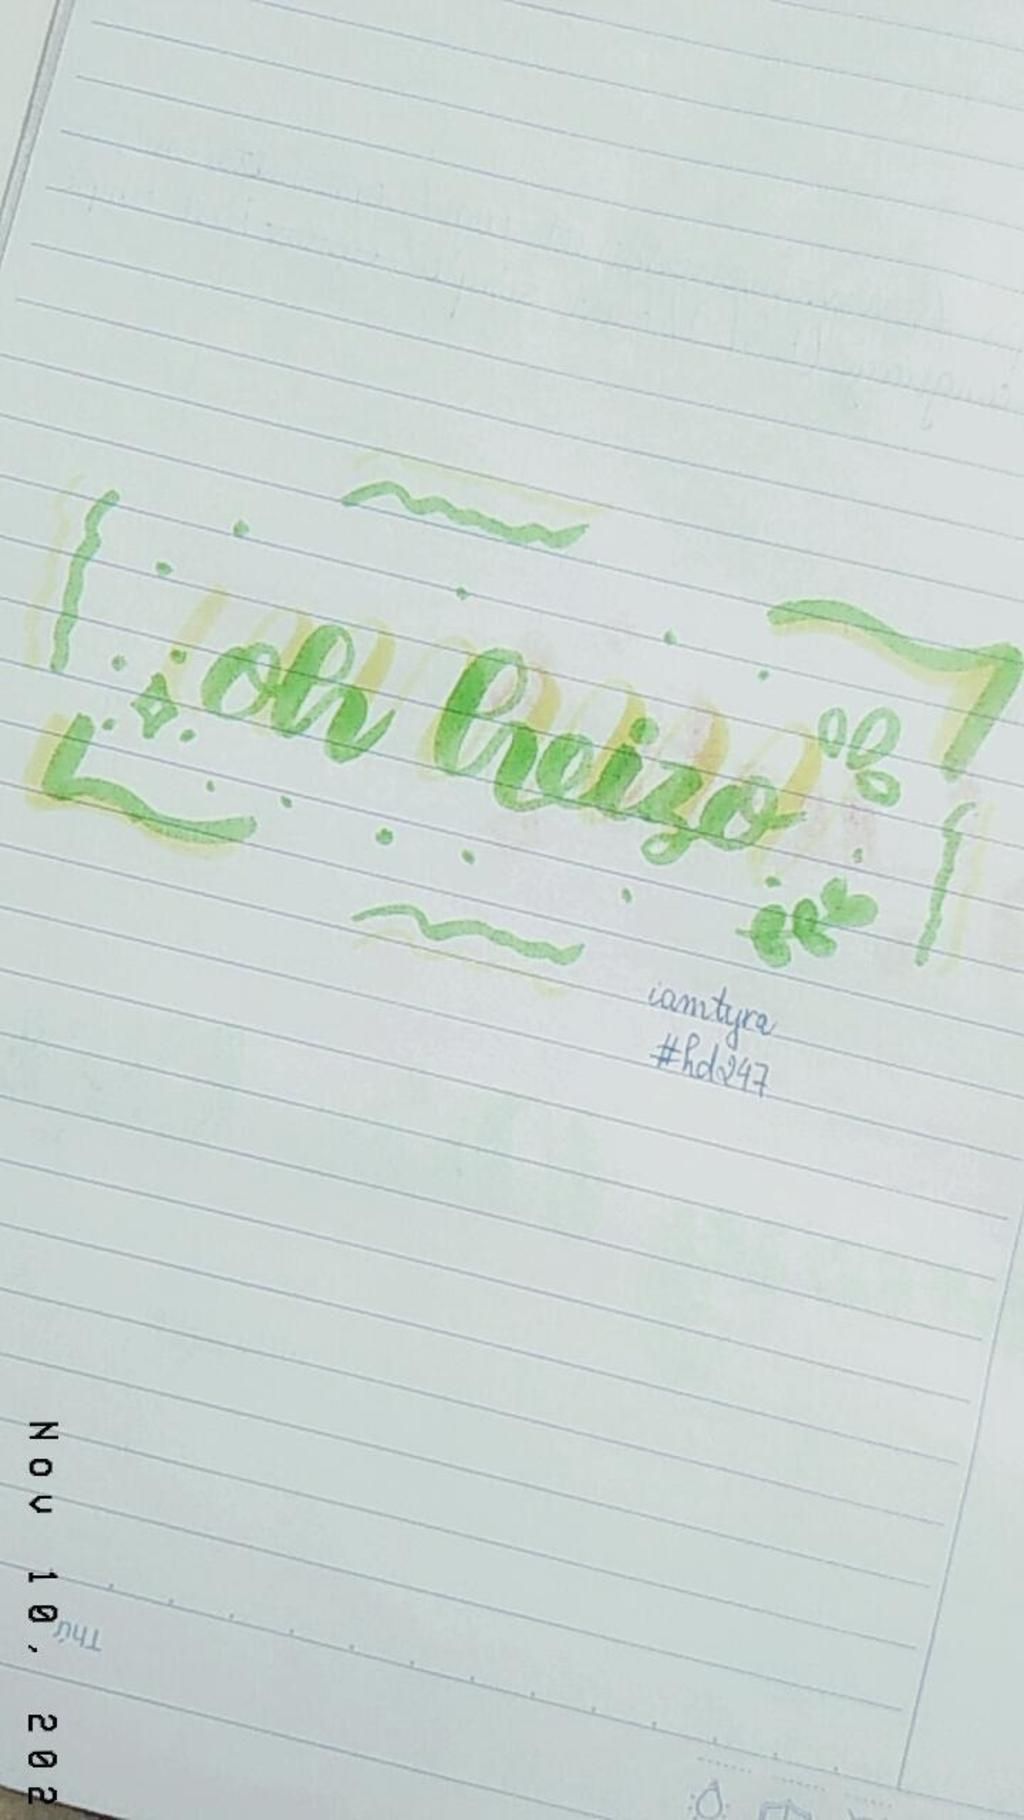 oh heizo
iamtyra
#hd247
Nov 10, 202
Thứ